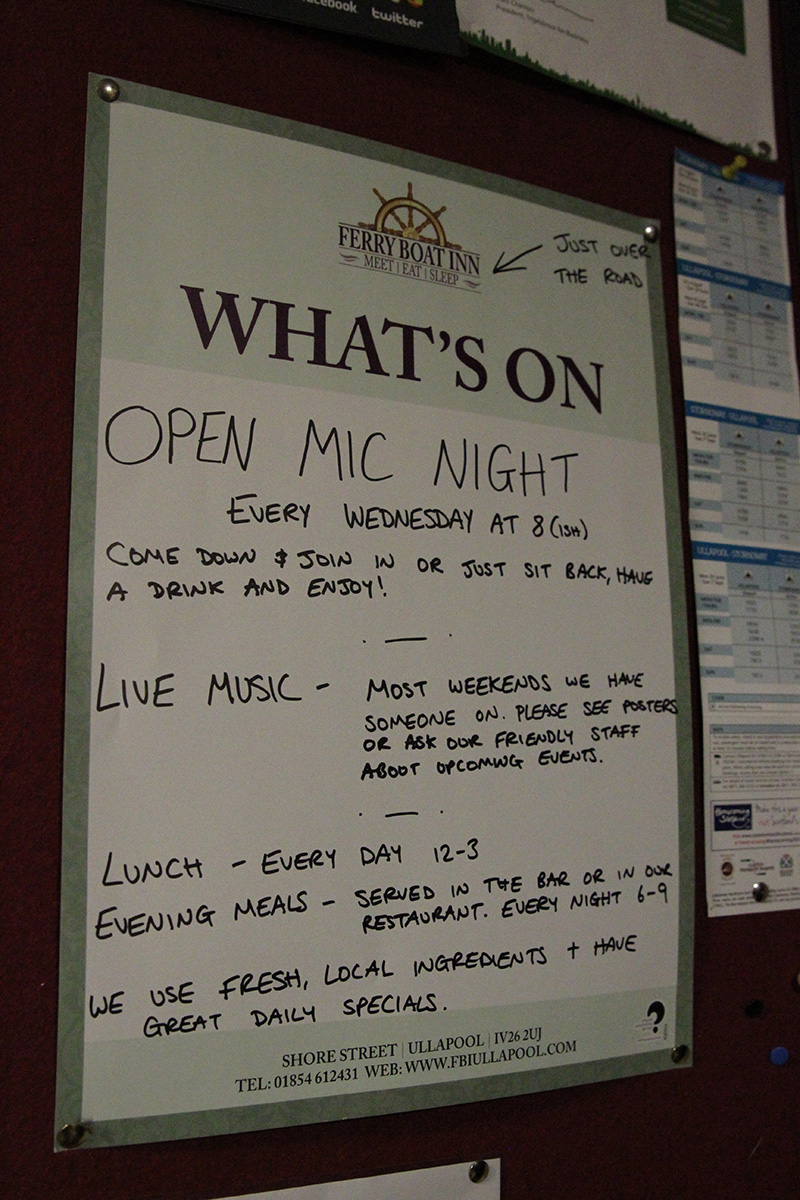 facebook twitter
FERRY BOAT INN
MEET | EAT | SLEEP
JUST OVER
THE ROAD
WHAT'S ON
OPEN MIC NIGHT
EVERY WEDNESDAY AT 8 (ISH)
COME DOWN & JOIN IN OR JUST SIT BACK, HAVE
A DRINK AND ENJOY!
LIVE MUSIC - MOST WEEKENDS WE HAVE
SOMEONE ON. PLEASE SEE POSTERS
OR ASK OUR FRIENDLY STAFF
ABOOT UPCOMING EVENTS.
LUNCH - EVERY DAY 12-3
EVENING MEALS - SERVED IN THE BAR OR IN OUR
RESTAURANT. EVERY NIGHT 6-9
WE USE FRESH, LOCAL INGREDIENTS + HAVE
GREAT DAILY SPECIALS.
SHORE STREET | ULLAPOOL | IV26 2UJ
TEL: 01854 612431 WEB: WWW.FBIULLAPOOL.COM
ULLAPOOL-STORNOWAY
STORNOWAY-ULLAPOOL
ULLAPOOL-STORNOWAY